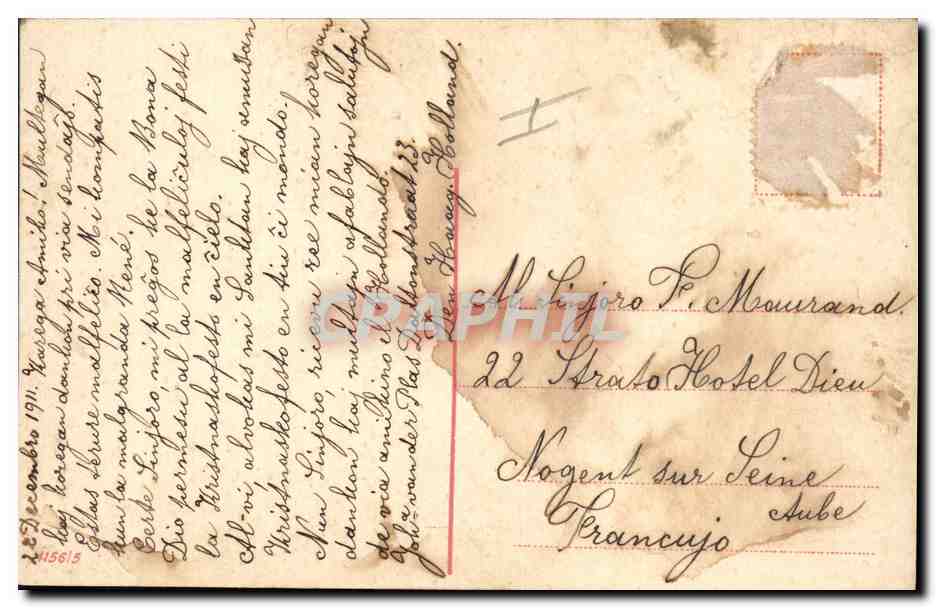 22 Decembro 1911. Karega Amiko! Multegan
kaj koregan dankon pri via sendaĵo.
Estas terure malfeliĉo. Mi kompatis
kun la malgranda René.
Certe Sinjoro mi preĝos ke la Bona
Dio permesu al la malfeliĉuloj festi
la Kristnaskofesto en ĉielo.
Al vi alvokas mi Sanktan kaj amusan
Kristnaskofesto en tiu ĉi mondo.
Nun Sinjoro ricevu ree mian koregan
dankon kaj multajn afablajn salutojn
de via amikino el Hollando.
Joh. van der Plas Dattonstraat 23.
Den Haag. Holland
Al Sinjoro F. Maurand.
22 Strato Hotel Dieu
Nogent sur Seine
Aube
Francujo
4156/5
CRAPHIL